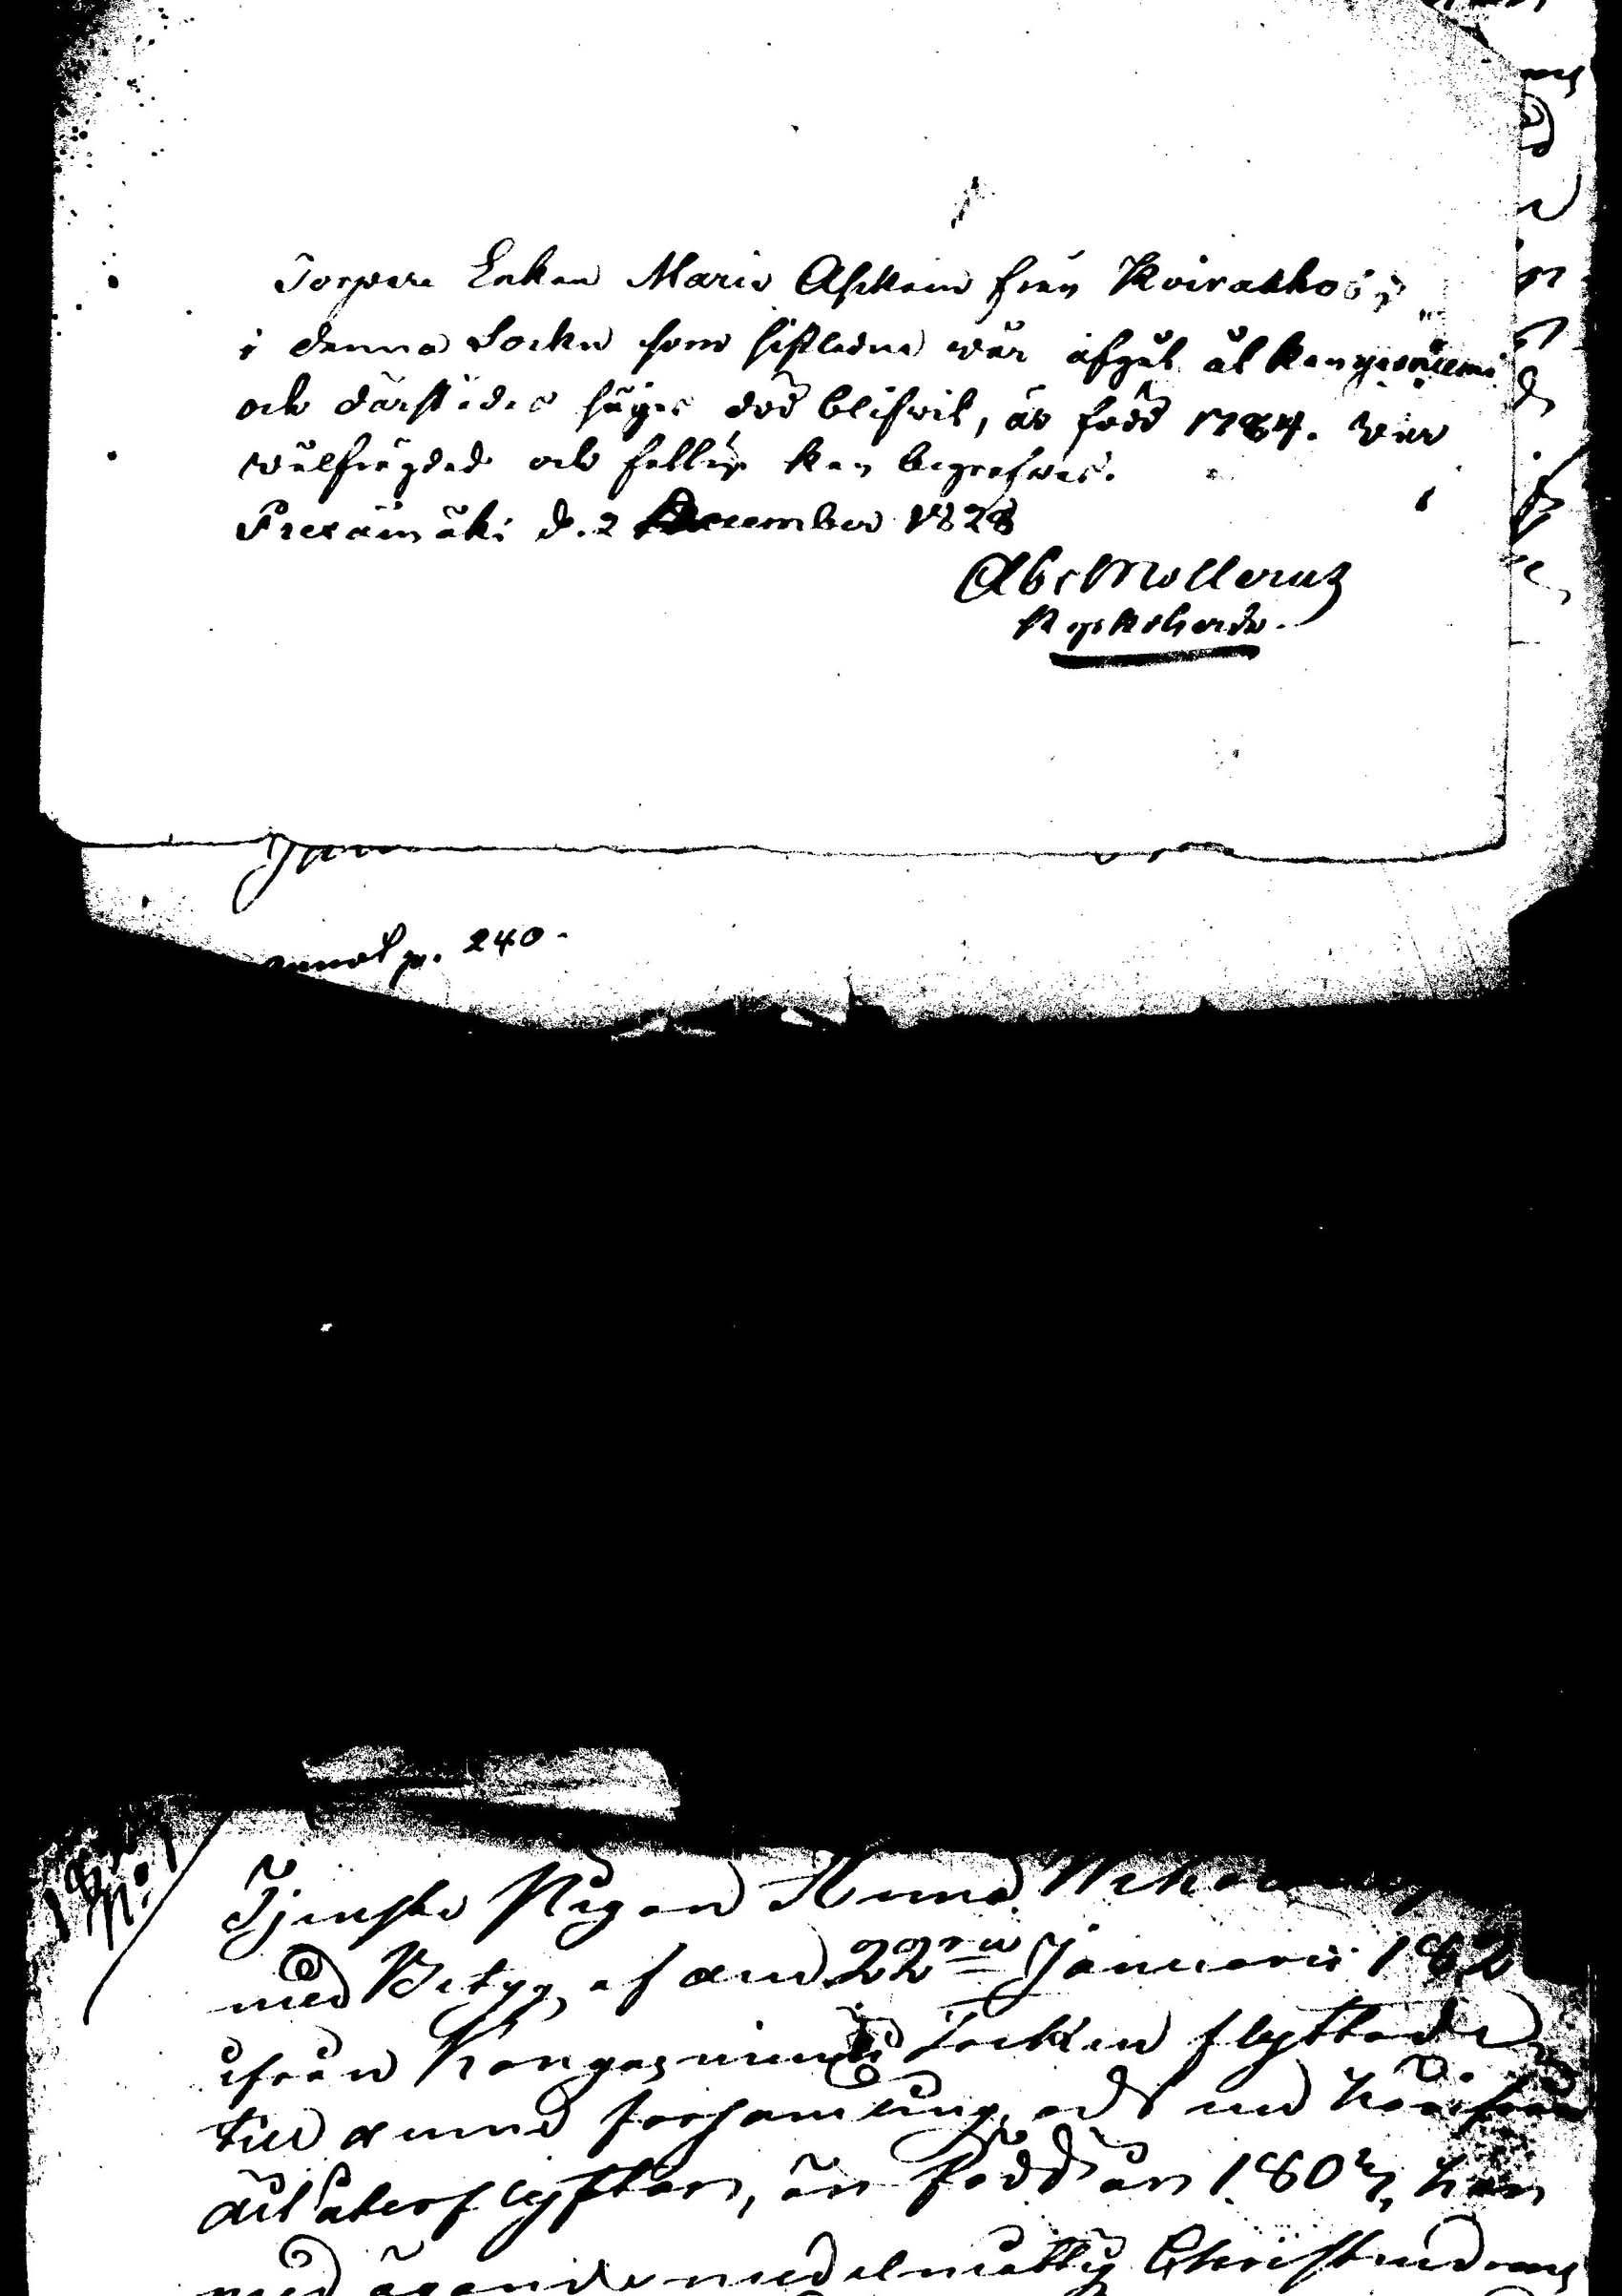 Torpare Enkan Maria Asikain från Koirakko
i denna Socken som sistledne wår afgåt åt Kangasniemi
och därstädes säges död blifwit, är född 1784. War
wälfrägdad och således kan begrafwas.
Piexämäki d. 2 December 1828
Abr Mollerus
Kyrkoherde.
p. 240.
N:
Tjenste Pigan Anna
med Betyg af den 22 Januarii 182
ifrån Kangasniemi Socken flyttade
till denna församling och nu härifrån
dit återflyttar, är född år 1803, har
med ägande medelmåttig Christendoms